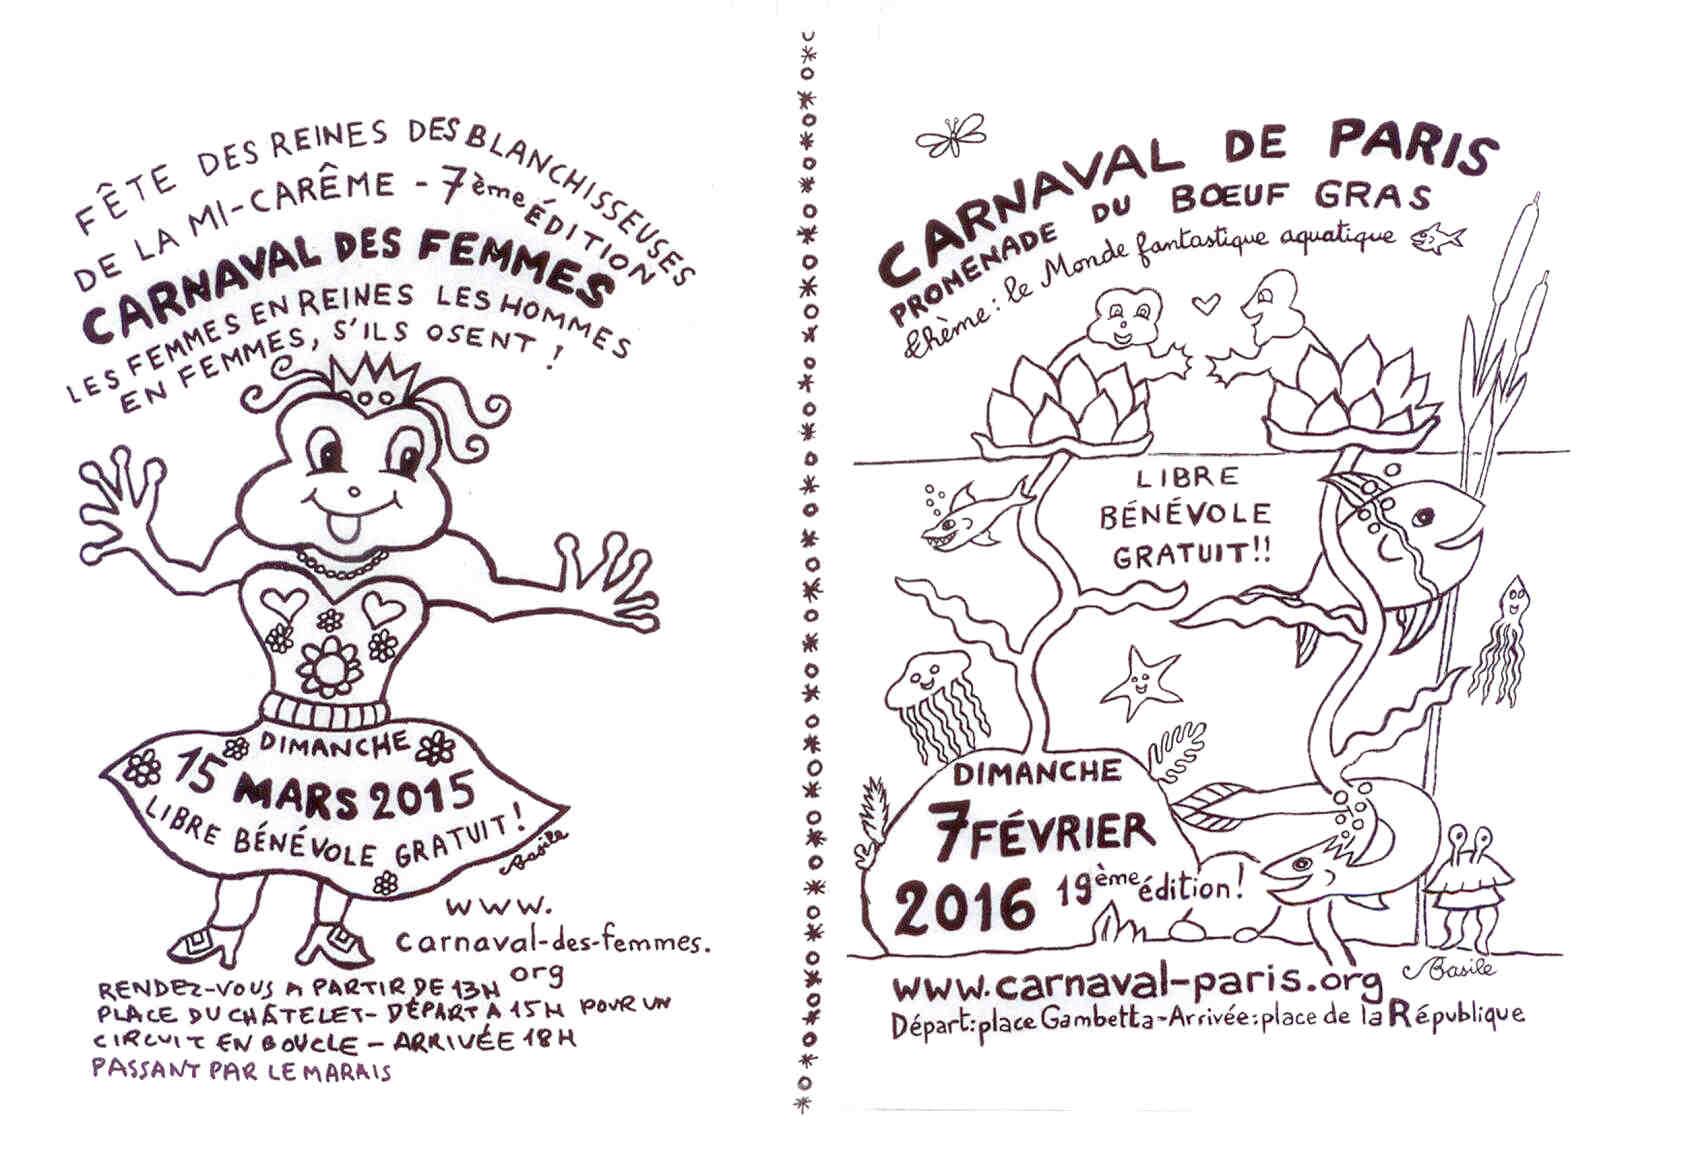 FÊTE DES REINES DES BLANCHISSEUSES
DE LA MI-CARÊME - 7ème ÉDITION
CARNAVAL DES FEMMES
LES FEMMES EN REINES LES HOMMES
EN FEMMES, S'ILS OSENT !
DIMANCHE
15 MARS 2015
LIBRE BÉNÉVOLE GRATUIT !
Basile
www.
carnaval-des-femmes.
org
RENDEZ-VOUS A PARTIR DE 13H
PLACE DU CHÂTELET - DÉPART À 15H POUR UN
CIRCUIT EN BOUCLE - ARRIVÉE 18H
PASSANT PAR LE MARAIS
CARNAVAL DE PARIS
PROMENADE DU BŒUF GRAS
thème : le Monde fantastique aquatique
LIBRE
BÉNÉVOLE
GRATUIT!!
DIMANCHE
7 FÉVRIER
2016 19ème édition !
Basile
www.carnaval-paris.org
Départ: place Gambetta - Arrivée: place de la République